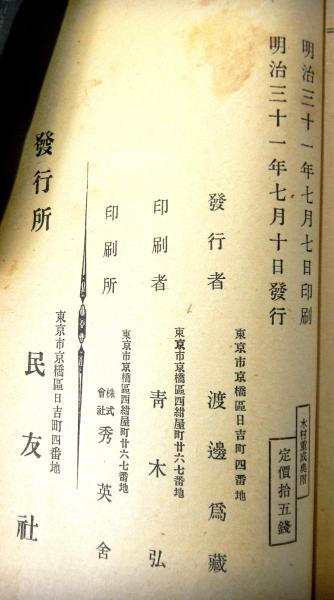 明治三十一年七月七日印刷
明治三十一年七月十日發行
木村重成奥附
定價拾五錢
東京市京橋區日吉町四番地
發行者 渡邊爲藏
東京市京橋區西紺屋町廿六七番地
印刷者 青木弘
東京市京橋區西紺屋町廿六七番地
印刷所 株式會社 秀英舍
東京市京橋區日吉町四番地
發行所 民友社